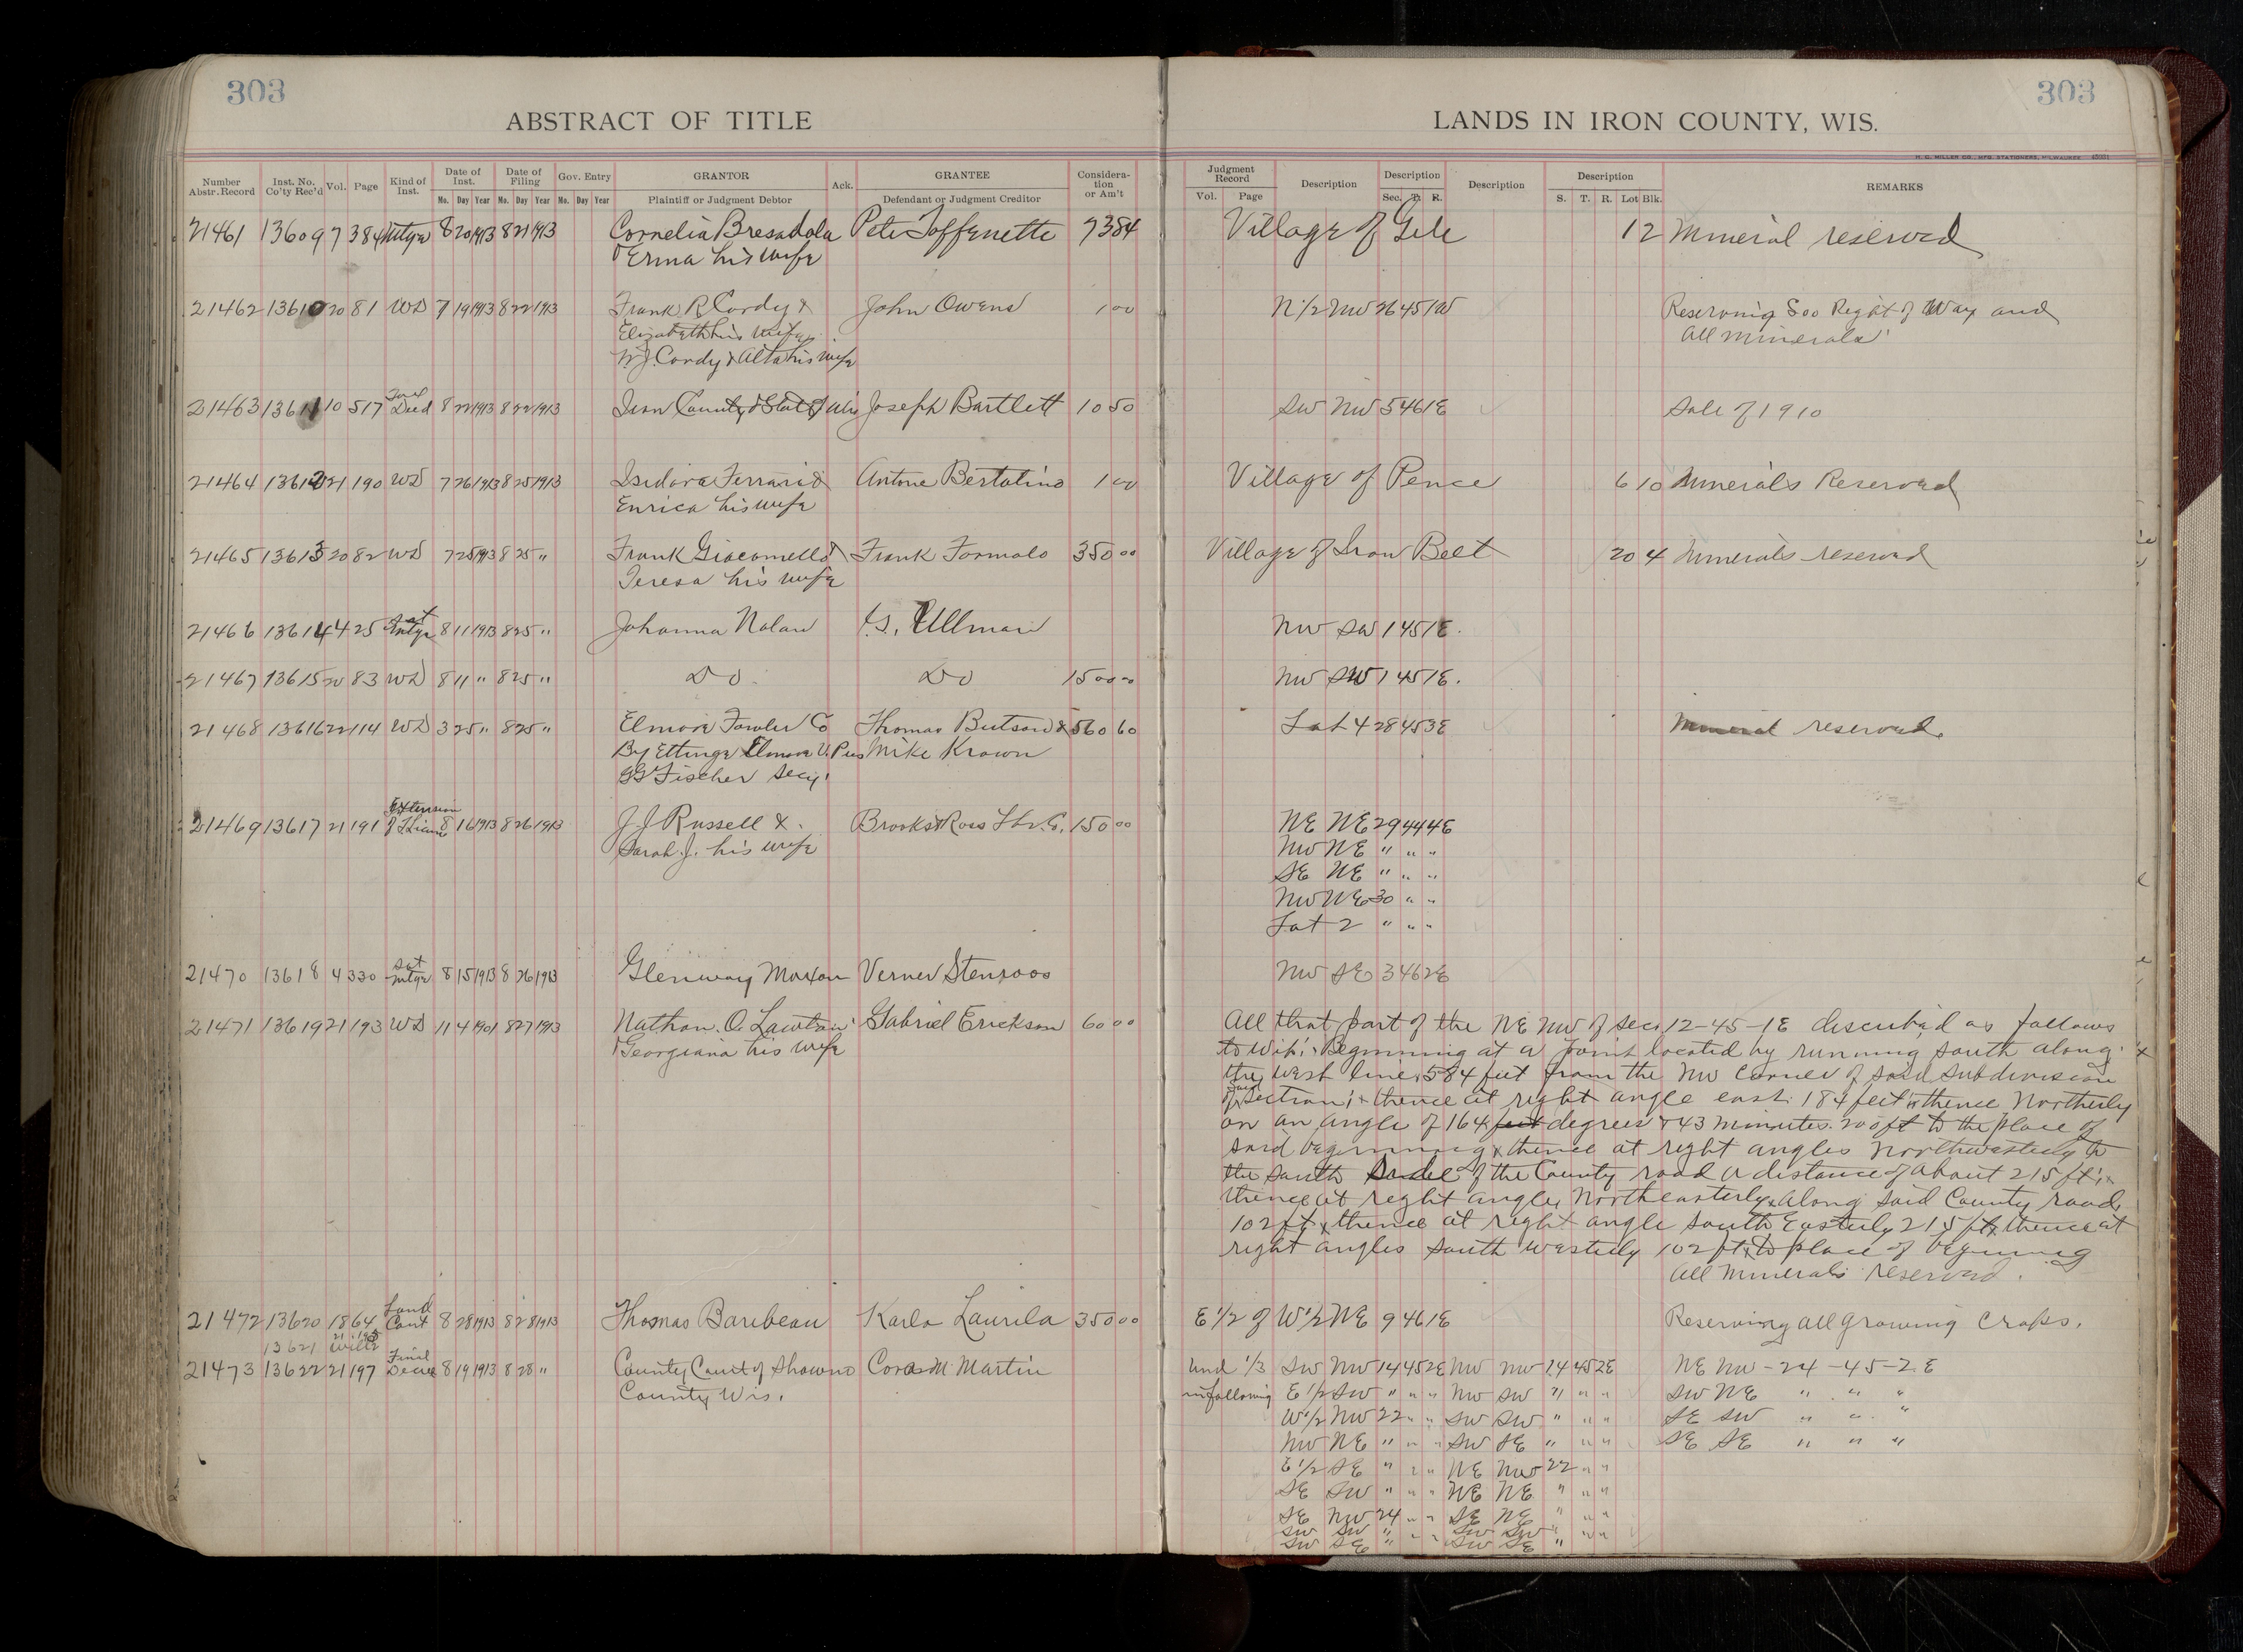 303
303
ABSTRACT OF TITLE
LANDS IN IRON COUNTY, WIS.
H. G. MILLER CO., MFG. STATIONERS, MILWAUKEE
Number Abstr. Record Inst. No. Co'ty Rec'd Vol. Page Kind of Inst. Date of Inst. Mo. Day Year Date of Filing Mo. Day Year Gov. Entry Mo. Day Year GRANTOR Plaintiff or Judgment Debtor Ack. GRANTEE Defendant or Judgment Creditor Considera-tion or Am't
Judgment Record Vol. Page Description Description Sec. T. R. Description Description S. T. R. Lot Blk. REMARKS
21461 13609 7 384 Mtge 8 20 1913 8 21 1913 Cornelia Bresadola Pete Toffenette 73 84 Village of Gile 1 2 Mineral reserved
& Erma his wife
21462 13610 20 81 WD 7 19 1913 8 22 1913 Frank R Cordy & John Owens 1 00 N 1/2 NW 26 45 1W Reserving Soo Right of Way and
Elizabeth his wife All minerals
W.J. Cordy & Alta his wife
21463 13611 10 517 Deed 8 22 1913 8 22 1913 Iron County & State of Wis Joseph Bartlett 10 50 SW NW 5 46 1E Sale of 1910
21464 13612 21 190 WD 7 26 1913 8 25 1913 Isidora Ferrari & Antone Bertolino 1 00 Village of Pence 6 10 Minerals Reserved
Enrica his wife
21465 13613 20 82 WD 7 25 1913 8 25 " Frank Giacomello & Frank Formolo 350 00 Village of Iron Belt 20 4 Minerals reserved
Teresa his wife
21466 13614 4 425 Sat Mtge 8 11 1913 8 25 " Johanna Nolan Ullman NW SW 1 45 1E.
21467 13615 20 83 WD 8 11 " 8 25 " Do Do 1500 00 NW SW 1 45 1E.
21468 13616 22 114 WD 3 25 " 8 25 " Elmore Fowler Co Thomas Butson & 560 60 Lot 4 28 45 3E Mineral reserved.
By Ettinge Elmore V. Pres Mike Krown
Fischer Secy.
21469 13617 21 191 Extension of License 8 16 1913 8 26 1913 J J Russell & Brooks & Ross Lbr. Co. 150 00 NE NE 29 44 4E
Sarah J. his wife NW NE " " "
SE NE " " "
NW NE 30 " "
Lot 2 " " "
21470 13618 4 330 Sat Mtge 8 15 1913 8 26 1913 Glenway Maxon Verner Stenroos NW SE 3 46 2E
21471 13619 21 193 WD 11 4 1901 8 27 1913 Nathan O. Lawton Gabriel Erickson 60 00 All that part of the NE NW of sec. 12-45-1E described as follows
& Georgiana his wife to wit: Beginning at a point located by running south along
the west line 584 feet from the NW corner of said subdivision
of said Section; thence at right angle east 184 feet thence Northerly
on an angle of 164 feet degrees & 43 minutes 200 ft to the place of
said beginning thence at right angles Northwesterly to
the south side of the County road a distance of about 215 ft;
thence at right angle Northeasterly along said County road
102 ft thence at right angle south Easterly 215 ft thence at
right angles south westerly 102 ft to place of beginning
All minerals reserved.
21472 13620 18 64 Land Cont 8 28 1913 8 28 1913 Thomas Baribeau Karlo Laurila 350 00 E 1/2 of W 1/2 NE 9 46 1E Reserving all growing crops.
13621 21 195 Will
21473 13622 21 197 Final Decree 8 19 1913 8 28 " County Court of Shawno Cora M. Martin Und 1/3 SW NW 14 45 2E NW NW 14 45 2E NE NW - 24 - 45 - 2 E
County Wis. in following E 1/2 SW " " " NW SW " " " SW NE " " "
W 1/2 NW 22 " " SW SW " " " SE SW " " "
NW NE " " " SW SE " " " SE SE " " "
E 1/2 SE " " " NE NW 22 " "
SE SW " " " NE NE " " "
SE NW 24 " " SE NE " " "
SW SW " " " SW SW " " "
SW SE " SW SE "